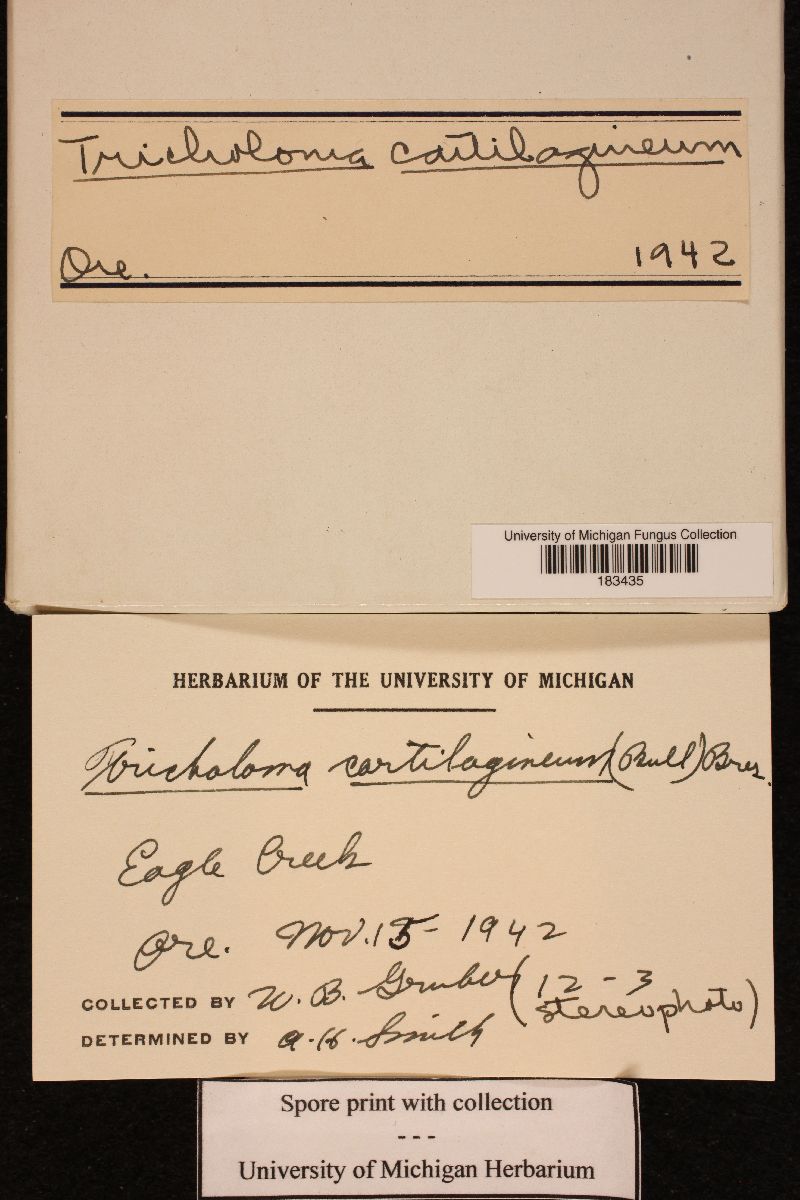 Tricholoma cartilagineum
Ore. 1942
University of Michigan Fungus Collection
183435
HERBARIUM OF THE UNIVERSITY OF MICHIGAN
Tricholoma cartilagineum (Bull) Bres.
Eagle Creek
Ore. Nov. 15 - 1942
COLLECTED BY W. B. Gruber (12 - 3
stereophoto)
DETERMINED BY A. H. Smith
Spore print with collection
- - -
University of Michigan Herbarium